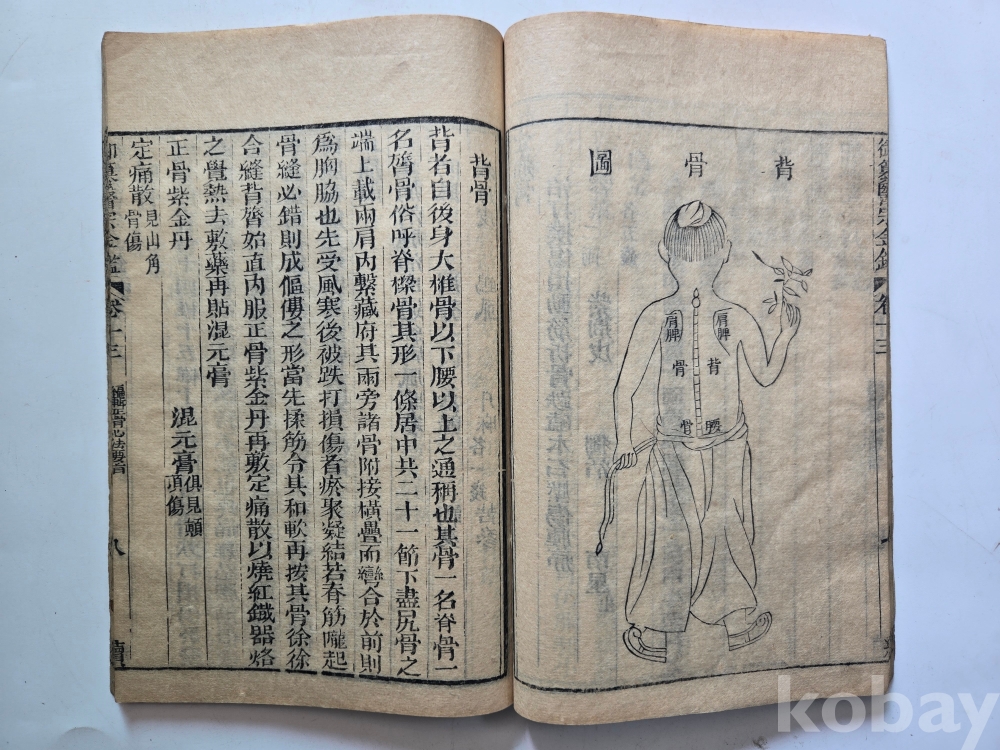 御纂醫宗金鑑 卷十三
背骨圖
肩胛
肩胛
背
骨
腰
骨
背骨
背者自後身大椎骨以下腰以上之通稱也其骨一名脊骨一
名膂骨俗呼脊樑骨其形一條居中共二十一節下盡尻骨之
端上載兩肩內繫藏府其兩旁諸骨附接橫疊而彎合於前則
爲胸脇也先受風寒後被跌打損傷者瘀聚凝結若脊筋隴起
骨縫必錯則成傴僂之形當先揉筋令其和軟再按其骨徐徐
合縫背膂始直內服正骨紫金丹再敷定痛散以燒紅鐵器烙
之覺熱去敷藥再貼混元膏
正骨紫金丹 混元膏俱見顛頂傷
定痛散見山角骨傷
御纂醫宗金鑑 卷十三 編輯正骨心法要旨 八
kobay